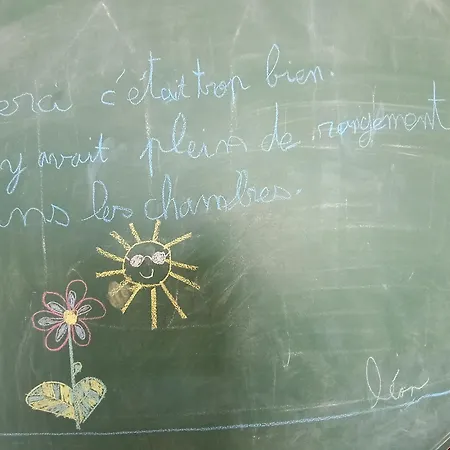 erci c'était trop bien.
y avait plein de rangement
ans les chambres.
Léon